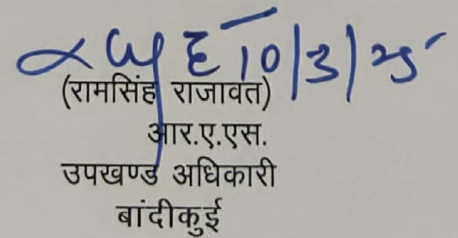 10/3/25
(रामसिंह राजावत)
आर.ए.एस.
उपखण्ड अधिकारी
बांदीकुई